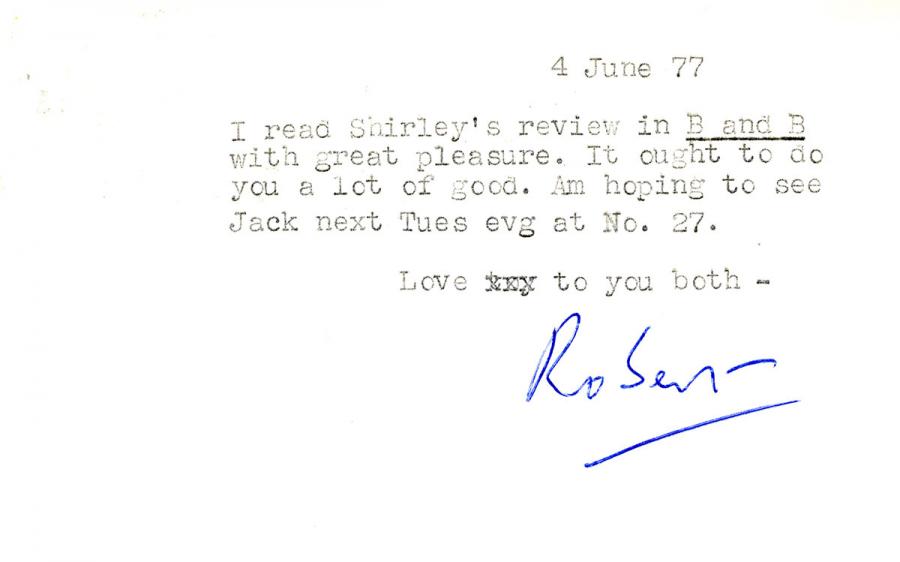 4 June 77
I read Shirley's review in B and B
with great pleasure. It ought to do
you a lot of good. Am hoping to see
Jack next Tues evg at No. 27.
Love to you both -
Robert